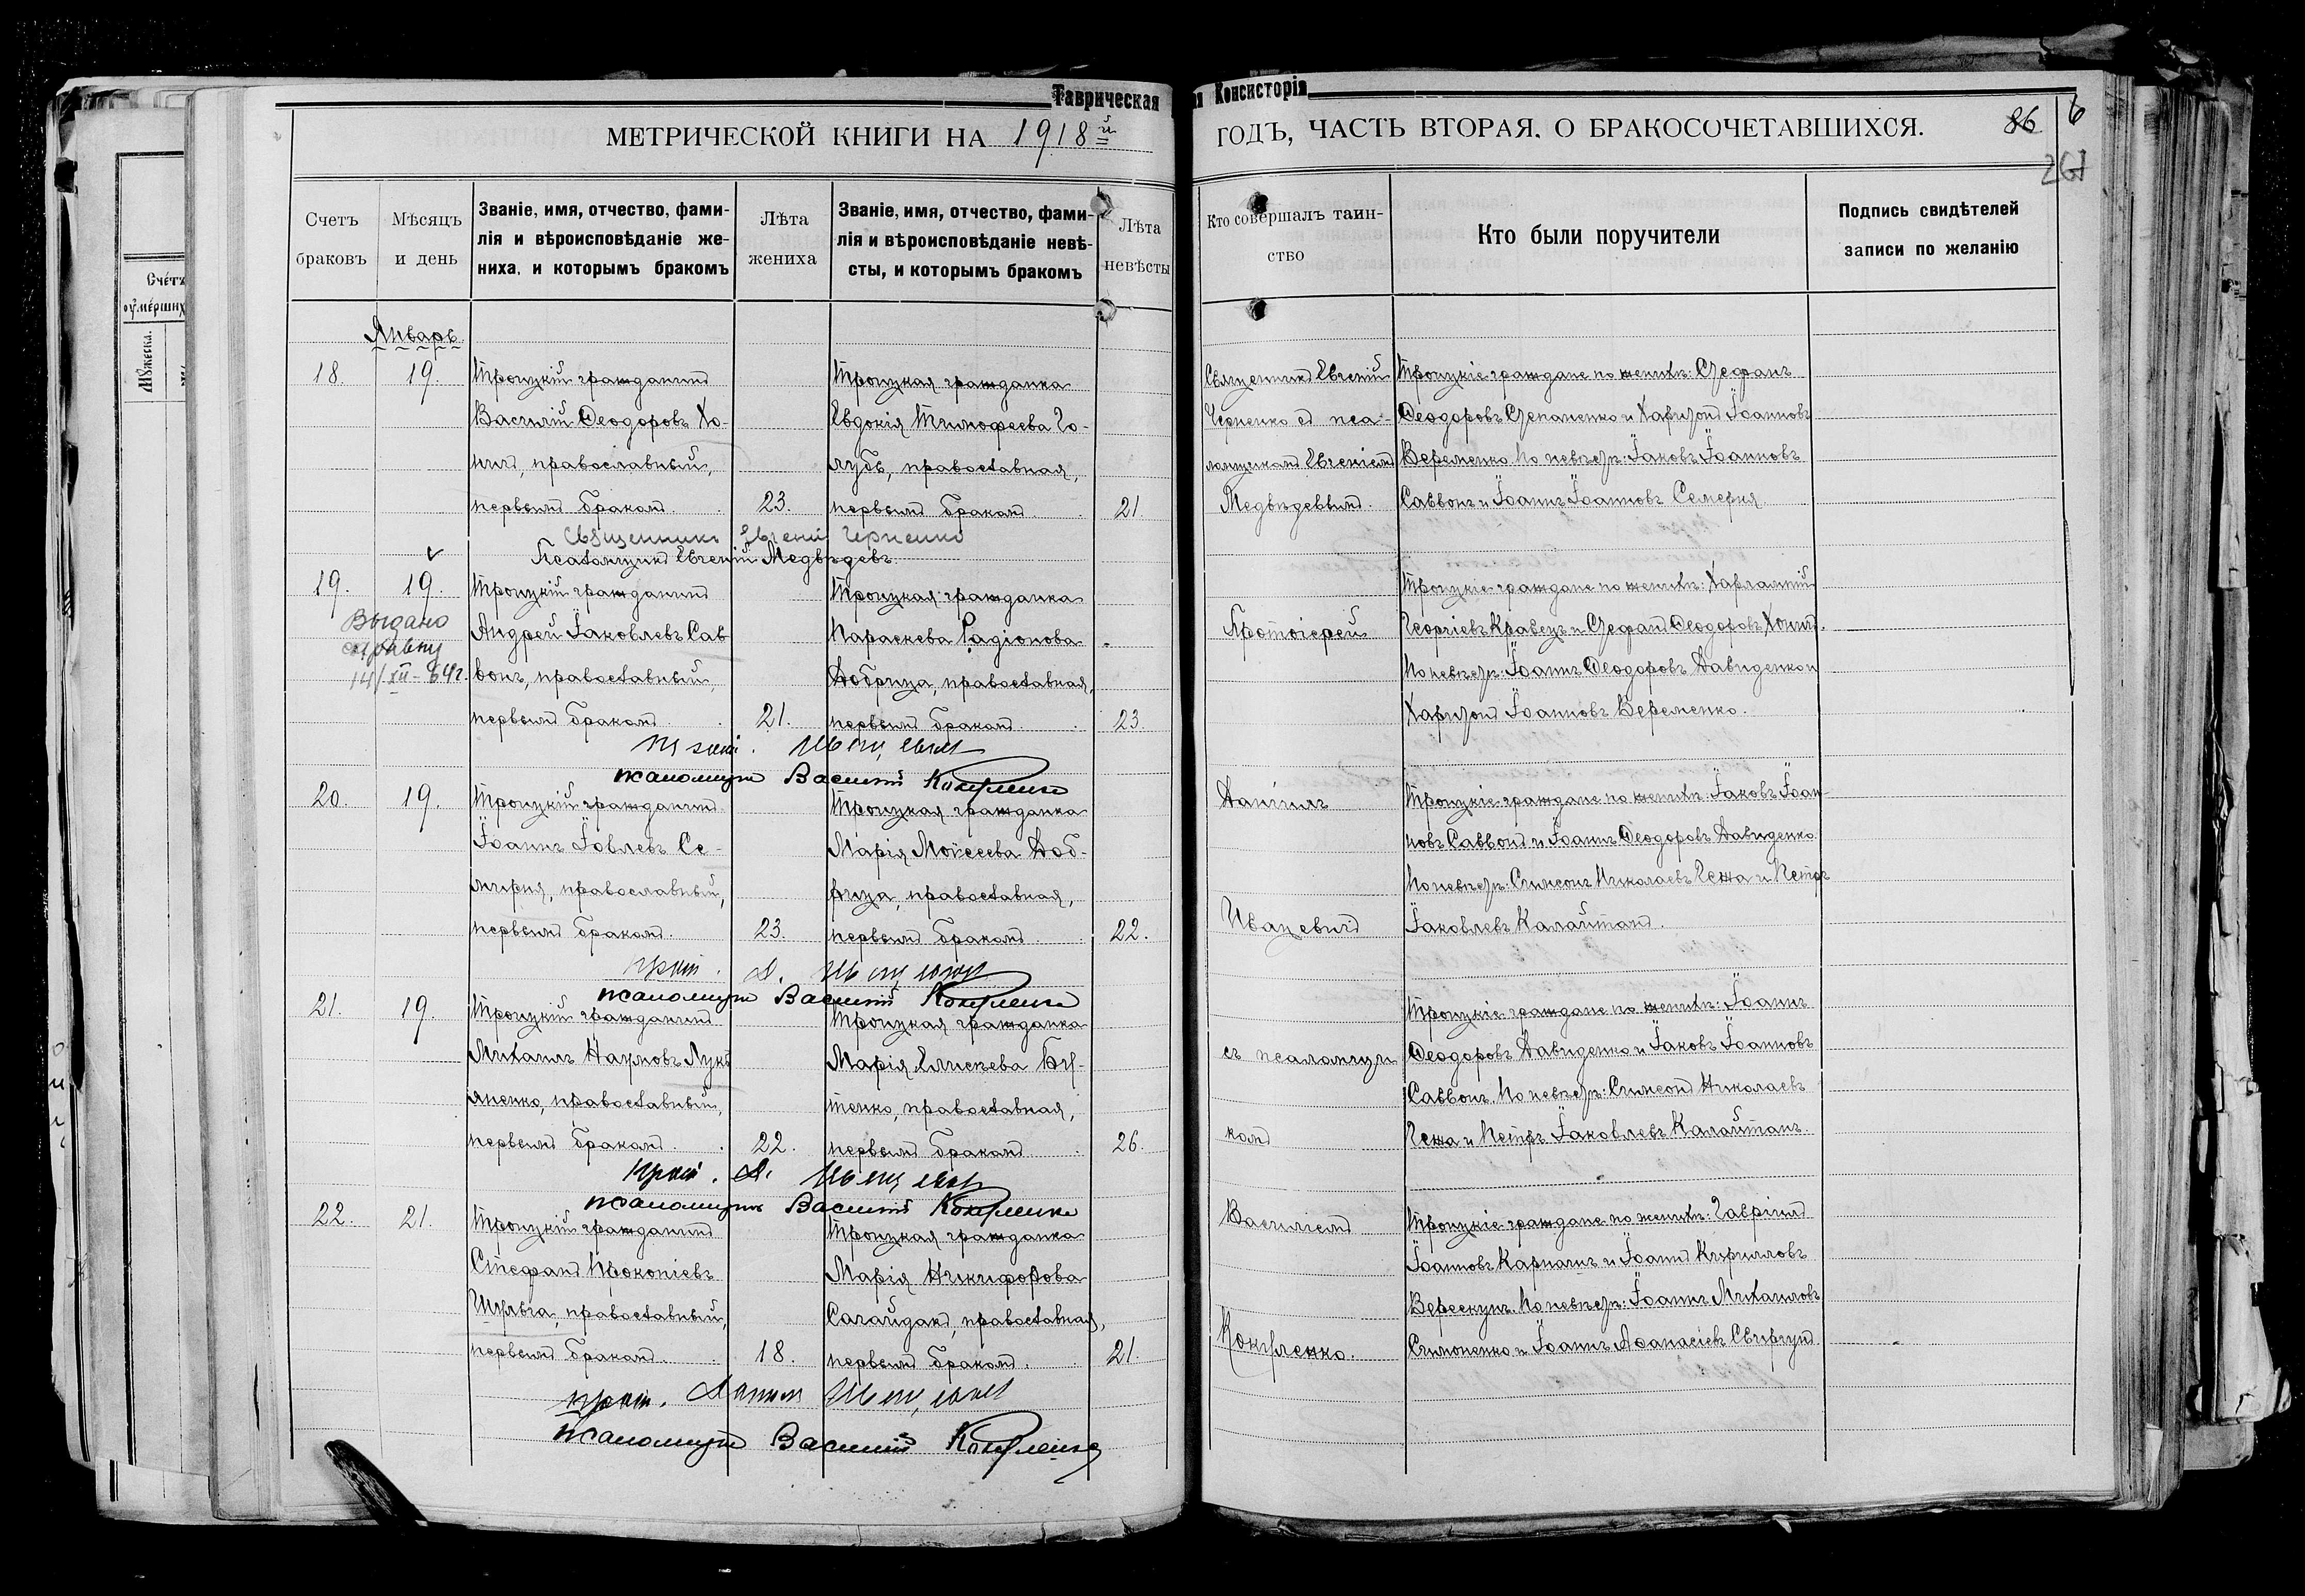 Таврическая
ая Консисторія
МЕТРИЧЕСКОЙ КНИГИ НА 1918й
ГОДЪ, ЧАСТЬ ВТОРАЯ, О БРАКОСОЧЕТАВШИХСЯ.
86 6
261
Счетъ
браковъ
Мѣсяцъ
и день
Званіе, имя, отчество, фами-
лія и вѣроисповѣданіе же-
ниха, и которымъ бракомъ
Лѣта
жениха
Званіе, имя, отчество, фами-
лія и вѣроисповѣданіе невѣ-
сты, и которымъ бракомъ
Лѣта
невѣсты
Кто совершалъ таин-
ство
Кто были поручители
Подпись свидѣтелей
записи по желанію
Счетъ
Мужеска.
Январь.
18.
19.
Троицкій гражданинъ
Василій Ѳеодоровъ Хо-
ничъ, православный,
первымъ бракомъ.
23.
Троицкая гражданка
Евдокія Тимофеева Го-
лубь, православная,
первымъ бракомъ.
21.
Священникъ Евгеній
Черненко съ пса-
ломщикомъ Евгеніемъ
Медвѣдевымъ.
Троицкіе граждане по женихѣ: Стефанъ
Ѳеодоровъ Степаненко и Харитонъ Іоанновъ
Веременко. По невѣстѣ: Іаковъ Іоанновъ
Саввонъ и Іоаннъ Іоанновъ Семерня.
Священникъ Евгеній Черненко
Псаломщикъ Евгеній Медвѣдевъ.
19.
19.
Выдано
справку
14/XII-64г.
Троицкій гражданинъ
Андрей Іаковлевъ Сав-
вонъ, православный,
первымъ бракомъ.
21.
Троицкая гражданка
Параскева Радіонова
Добрица, православная,
первымъ бракомъ.
23.
Протоіерей
Троицкіе граждане по женихѣ: Харлампій
Георгіевъ Кравецъ и Стефанъ Ѳеодоровъ Хоничъ.
По невѣстѣ: Іоаннъ Ѳеодоровъ Давиденко и
Харитонъ Іоанновъ Веременко.
псаломщикъ Василій
20.
19.
Троицкій гражданинъ
Іоаннъ Іовлевъ Се-
мирня, православный,
первымъ бракомъ.
23.
Троицкая гражданка
Марія Моѵсеева Доб-
рица, православная,
первымъ бракомъ.
22.
Даніилъ
Ивацевичъ
Троицкіе граждане по женихѣ: Іаковъ Іоан-
новъ Саввонъ и Іоаннъ Ѳеодоровъ Давиденко.
По невѣстѣ: Симеонъ Николаевъ Гежа и Петръ
Іаковлевъ Калайтанъ.
прот. Д.
псаломщикъ Василій
21.
19.
Троицкій гражданинъ
Михаилъ Наумовъ Лукь-
яненко, православный,
первымъ бракомъ.
22.
Троицкая гражданка
Марія Елисеева Бу-
тенко, православная,
первымъ бракомъ.
26.
съ псаломщи-
комъ
Троицкіе граждане по женихѣ: Іоаннъ
Ѳеодоровъ Давиденко и Іаковъ Іоанновъ
Саввонъ. По невѣстѣ: Симеонъ Николаевъ
Гежа и Петръ Іаковлевъ Калайтанъ.
прот. Д.
псаломщикъ Василій
22.
21.
Троицкій гражданинъ
Стефанъ Прокопіевъ
Шульга, православный,
первымъ бракомъ.
18.
Троицкая гражданка
Марія Никифорова
Сагайдакъ, православная,
первымъ бракомъ.
21.
Василіемъ
Троицкіе граждане по женихѣ: Гавріилъ
Іоанновъ Карначъ и Іоаннъ Кирилловъ
Верескунъ. По невѣстѣ: Іоаннъ Михаиловъ
Симоненко и Іоаннъ Аѳанасіевъ Свиргунъ.
прот. Даніилъ
псаломщикъ Василій